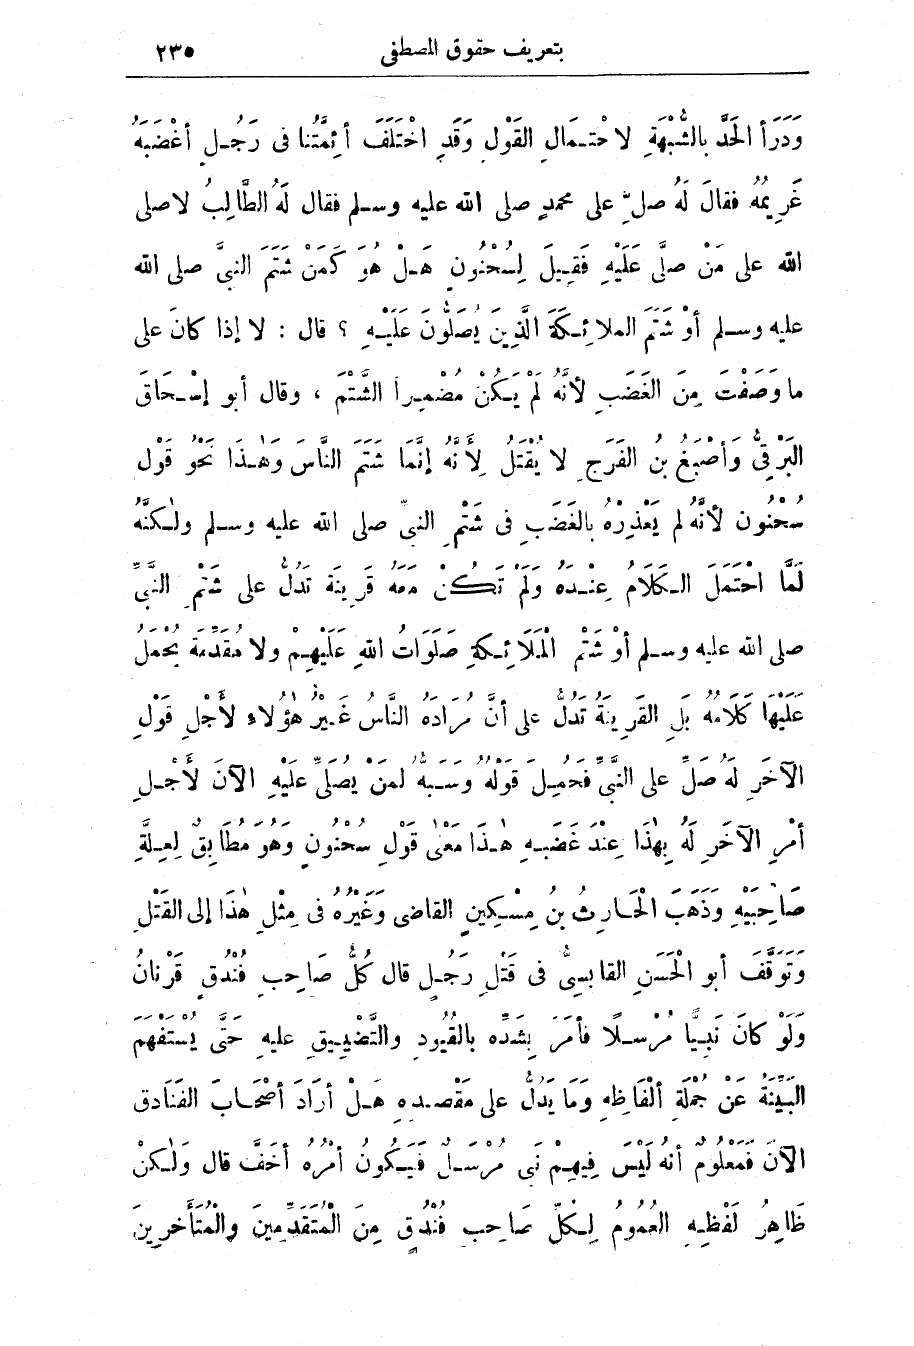 بتعريف حقوق المصطفى ٢٣٥
وَدَرَأَ الحَدَّ بالشُّبْهَةِ لاحْتِمَالِ القَوْلِ وَقَدِ اخْتَلَفَ أَئِمَّتُنا فى رَجُلٍ أغْضَبَهُ
غَرِيمُهُ فقالَ لَهُ صلِّ على محمدٍ صلى الله عليه وسلم فقال لَهُ الطَّالِبُ لاصلى
الله على مَنْ صلَّى عَلَيْهِ فَقِيلَ لِسُحْنُونٍ هَلْ هُوَ كَمَنْ شَتَمَ النبىَّ صلى الله
عليه وسلم أوْ شَتَمَ الملائِكَةَ الَّذِينَ يُصَلُّونَ عَلَيْهِ ؟ قال : لا إذا كانَ على
ما وَصَفْتَ مِنَ الغَضَبِ لأنَّهُ لَمْ يَكُنْ مُضْمِراً الشَّتْمَ ، وقال أبو إسْحَاقَ
البَرْقِىُّ وَأصْبَغُ بنُ الفَرَجِ لا يُقْتَلُ لِأَنَّهُ إنَّمَا شَتَمَ النَّاسَ وَهٰذَا نَحْوُ قَوْلِ
سُحْنُونٍ لأنَّهُ لم يَعْذِرْهُ بالغَضَبِ فى شَتْمِ النبىِّ صلى الله عليه وسلم ولٰكنَّهُ
لَمَّا احْتَمَلَ الكَلَامُ عِنْدَهُ وَلَمْ تَكُنْ مَعَهُ قَرِينَة تَدُلُّ على شَتْمِ النَّبىِّ
صلى الله عليه وسلم أوْ شَتْمِ الْمَلَائِكةِ صَلَوَاتُ اللهِ عَلَيْهِمْ ولا مُقَدِّمَة يُحْمَلُ
عَلَيْهَا كَلَامُهُ بَلِ القَرِينَةُ تَدُلُّ على أنَّ مُرَادَهُ النَّاسُ غَيْرُ هٰؤُلاءِ لأَجْلِ قَوْلِ
الآخَرِ لَهُ صَلِّ على النَّبىِّ فَحُمِلَ قَوْلُهُ وَسَبُّهُ لمنْ يُصَلِّى عَلَيْهِ الآنَ لأَجْلِ
أمْرِ الآخَرِ لَهُ بِهٰذَا عِنْدَ غَضَبِهِ هٰذَا مَعْنٰى قَوْلِ سُحْنُونٍ وَهُوَ مُطَابِقٌ لِعِلَّةِ
صَاحِبَيْهِ وَذَهَبَ الْحَارِثُ بنُ مِسْكِينٍ القاضى وَغَيْرُهُ فى مِثْلِ هٰذَا إلى القَتْلِ
وَتَوَقَّفَ أبو الْحَسَنِ القابسِىُّ فى قَتْلِ رَجُلٍ قال كُلُّ صَاحِبِ فُنْدُقٍ قَرْنانُ
وَلَوْ كانَ نَبِيًّا مُرْسلًا فأمَرَ بِشَدِّه بالقُيُودِ والتَّضْيِيقِ عليهِ حَتَّى يُسْتَفْهَمَ
البَيِّنَةُ عَنْ جُمْلَةِ ألْفَاظِهِ وَمَا يَدُلُّ على مَقْصِدِهِ هَلْ أرَادَ أصْحَابَ الفَنَادِقِ
الآنَ فَمَعْلُومٌ أنهُ لَيْسَ فِيهِمْ نَبى مُرْسَلٌ فَيَكُونُ أمْرُهُ أخَفَّ قال وَلٰكنْ
ظَاهِرُ لَفْظِهِ العُمُومُ لِكلِّ صَاحِبِ فُنْدُقٍ مِنَ الْمُتَقَدِّمِينَ والْمُتَأَخرِينَ